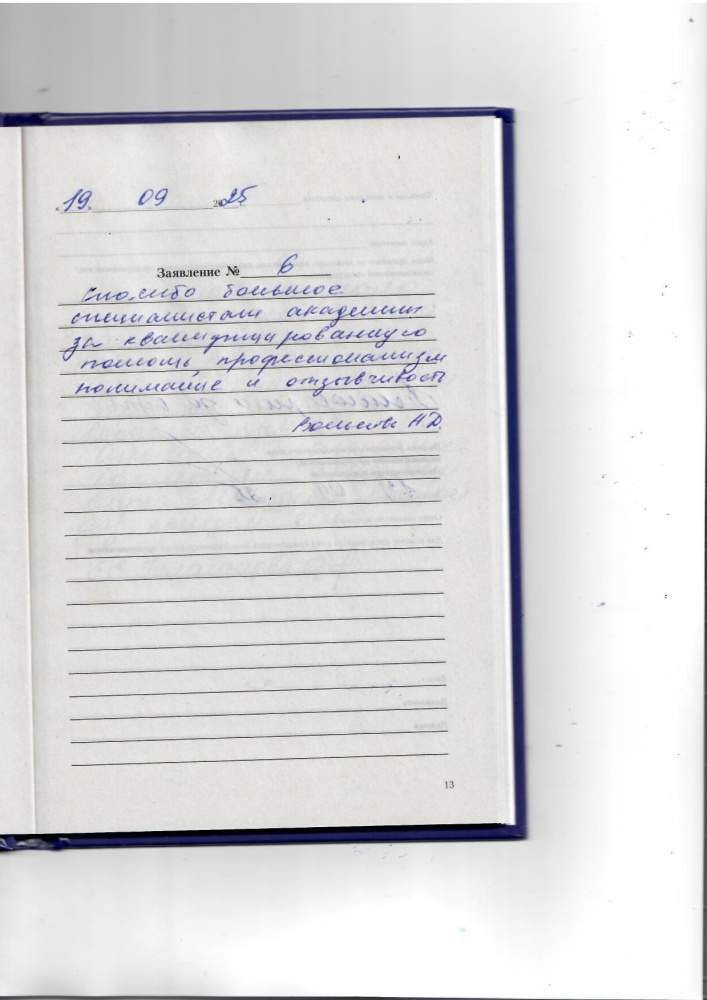 19 09 2025
Заявление № 6
Спасибо большое
специалистам академии
за квалифицированную
помощь, профессионализм
понимание и отзывчивость
Н.Д.
13